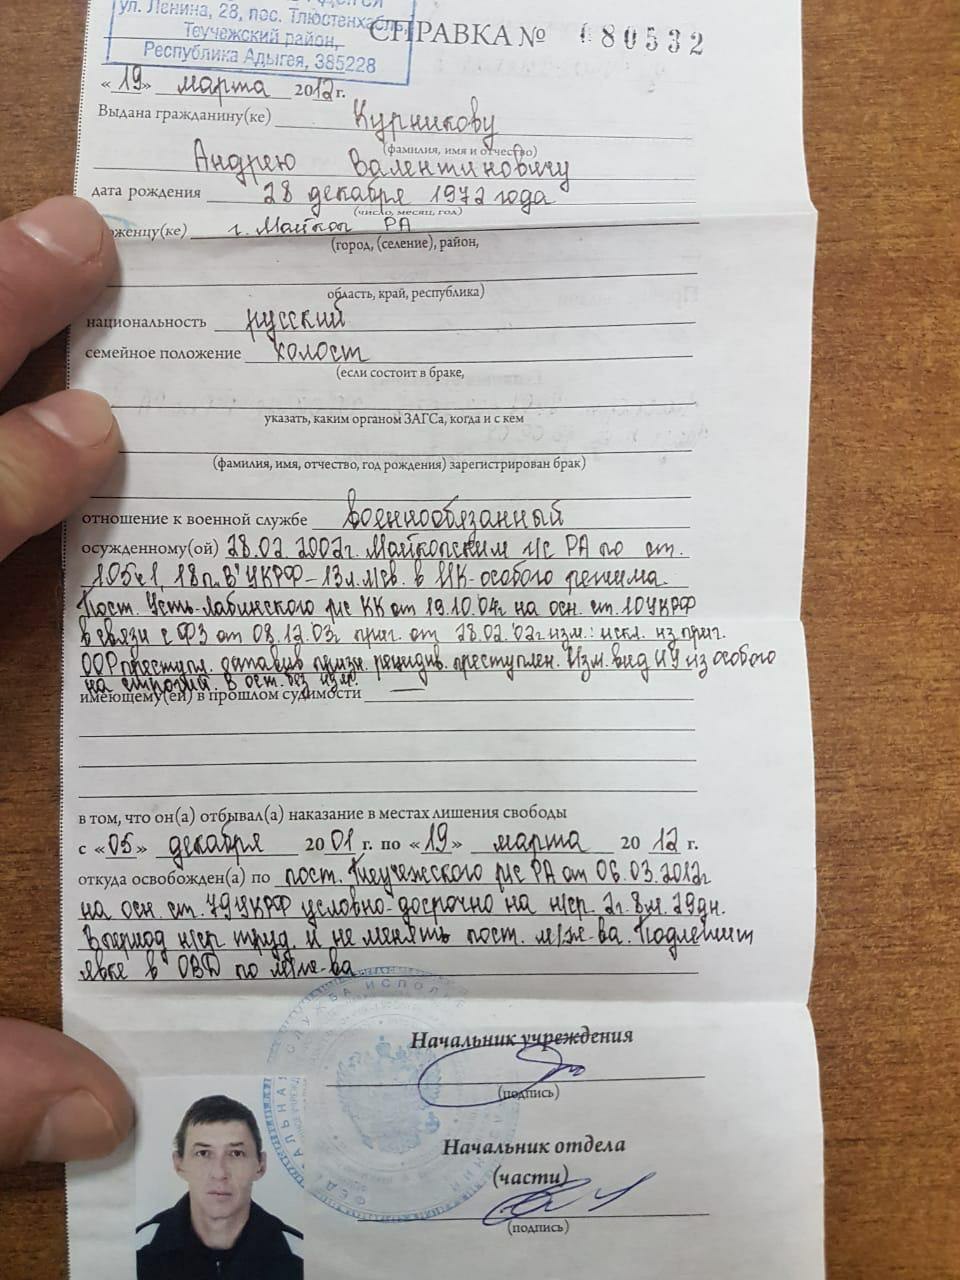 ул. Ленина, 28, пос. Тлюстенхабль,
Теучежский район,
Республика Адыгея, 385228
СПРАВКА № 080532
«19» марта 2012 г.
Выдана гражданину(ке) Курникову
(фамилия, имя и отчество)
Андрею Валентиновичу
дата рождения 28 декабря 1972 года
(число, месяц, год)
женцу(ке) г. Майкоп РА
(город, (селение), район,
область, край, республика)
национальность русский
семейное положение холост
(если состоит в браке,
указать, каким органом ЗАГСа, когда и с кем
(фамилия, имя, отчество, год рождения) зарегистрирован брак)
отношение к военной службе военнообязанный
осужденному(ой) 28.02.2002г. Майкопским г/с РА по ст.
105ч1, 18 п."В" УКРФ-13л.л/св. в ИК-особого режима.
Пост. Усть-Лабинского р/с КК от 19.10.04г на осн. ст. 10УКРФ
в связи с ФЗ от 08.12.03г приг. от 28.02.02г изм.: искл. из приг.
ООР преступл. оставив призн. рецидив. преступлен. Изм. вид ИУ из особого
на строгий. В ост. без изм.
имеющему(ей) в прошлом судимости —
в том, что он(а) отбывал(а) наказание в местах лишения свободы
с «05» декабря 2001 г. по «19» марта 2012 г.
откуда освобожден(а) по пост. Теучежского р/с РА от 06.03.2012г
на осн. ст. 79 УКРФ условно-досрочно на н/ср. 2г. 8м. 29дн.
В период н/ср труд. и не менять пост. м/ж-ва. Подлежит
явке в ОВД по м/ж-ва
Начальник учреждения
(подпись)
Начальник отдела
(части)
(подпись)